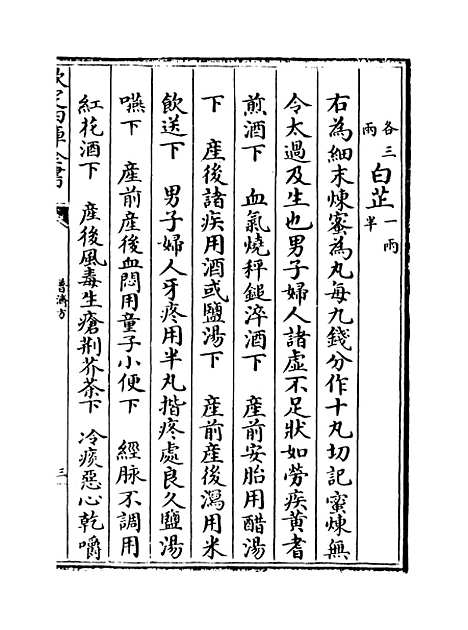 各三兩 白芷一兩半
右為細末煉蜜為丸每九錢分作十丸切記蜜煉無
令太過及生也男子婦人諸虛不足狀如勞疾黃耆
煎酒下 血氣燒秤鎚淬酒下 產前安胎用醋湯
下 產後諸疾用酒或鹽湯下 產前產後瀉用米
飲送下 男子婦人牙疼用半丸揩疼處良久鹽湯
嚥下 產前產後血悶用童子小便下 經脉不調用
紅花酒下 產後風毒生瘡荆芥茶下 冷痰惡心乾嚼
欽定四庫全書
普濟方
三